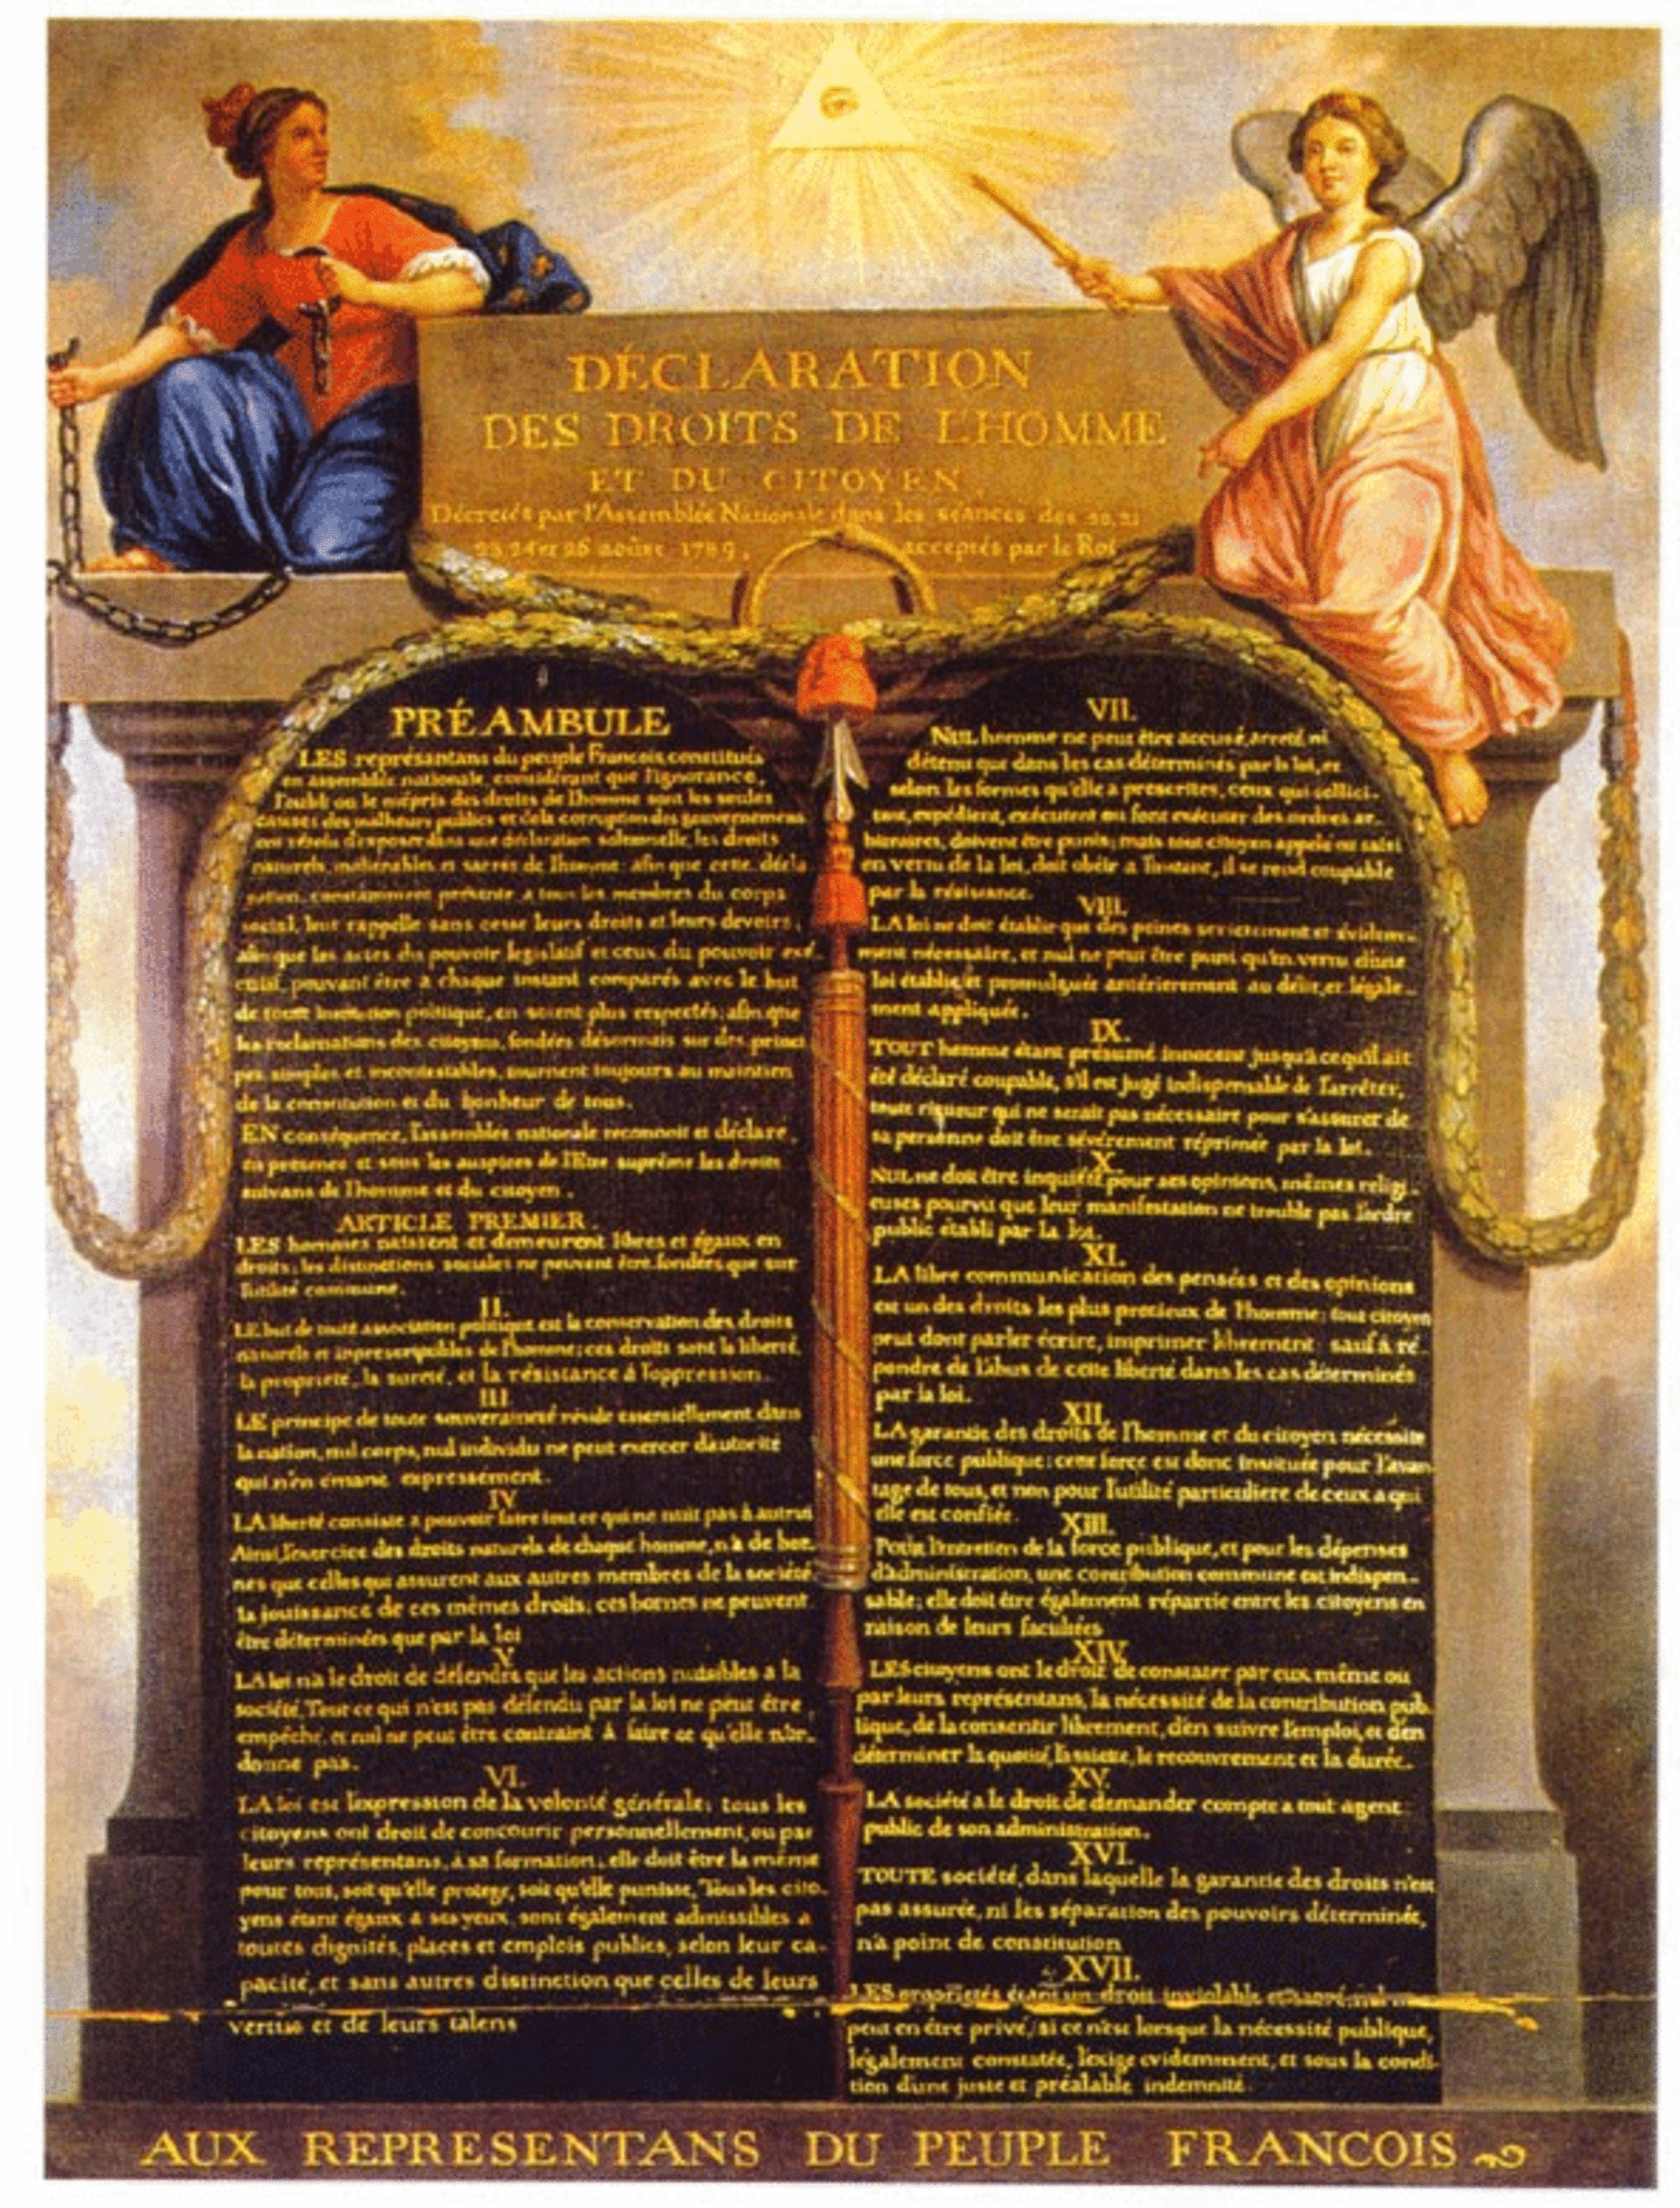 DÉCLARATION
DES DROITS DE L'HOMME
ET DU CITOYEN
Décretés par l'Assemblée Nationale dans les séances des 20, 21
23, 24 et 26 aoûst 1789, acceptés par le Roi
PRÉAMBULE
LES représentans du peuple François, constitués
en assemblée nationale, considérant que l'ignorance,
l'oubli ou le mépris des droits de l'homme sont les seules
causes des malheurs publics et de la corruption des gouvernemens
ont résolu d'exposer dans une déclaration solemnelle, les droits
naturels, inaliénables et sacrés de l'homme: afin que cette décla
ration, constamment présente a tous les membres du corps
social, leur rappelle sans cesse leurs droits et leurs devoirs,
afin que les actes du pouvoir législatif et ceux du pouvoir exé
cutif, pouvant être a chaque instant comparés avec le but
de toute institution politique, en soient plus respectés; afin que
les reclamations des citoyens, fondées désormais sur des princi
pes simples et incontestables, tournent toujours au maintien
de la constitution et du bonheur de tous.
EN conséquence, l'assemblée nationale reconnoit et déclare,
en presence et sous les auspices de l'Etre suprême les droits
suivans de l'homme et du citoyen.
ARTICLE PREMIER.
LES hommes naissent et demeurent libres et égaux en
droits, les distinctions sociales ne peuvent être fondées que sur
l'utilité commune.
II.
LE but de toute association politique est la conservation des droits
naturels et inprescriptibles de l'homme; ces droits sont la liberté,
la propriété, la sureté, et la résistance à l'oppression.
III
LE principe de toute souveraineté réside essentiellement dans
la nation, nul corps, nul individu ne peut exercer d'autorité
qui n'en émane expressément.
IV
LA liberté consiste a pouvoir faire tout ce qui ne nuit pas à autrui
Ainsi, l'exercice des droits naturels de chaque homme, n'a de bor-
nes que celles qui assurent aux autres membres de la société
la jouissance de ces mêmes droits; ces bornes ne peuvent
être déterminées que par la loi
V
LA loi n'a le droit de défendre que les actions nuisibles a la
société. Tout ce qui n'est pas défendu par la loi ne peut être
empêché, et nul ne peut être contraint à faire ce qu'elle n'or-
donne pas.
VI.
LA loi est l'expression de la volonté générale; tous les
citoyens ont droit de concourir personnellement, ou par
leurs représentans, à sa formation; elle doit être la même
pour tous, soit qu'elle protege, soit qu'elle punisse. Tous les cito-
yens étant égaux à ses yeux, sont également admissibles a
toutes dignités, places et emplois publics, selon leur ca-
pacité, et sans autres distinction que celles de leurs
vertus et de leurs talens
VII.
NUL homme ne peut être accusé, arreté, ni
détenu que dans les cas déterminés par la loi, et
selon les formes qu'elle a prescrites, ceux qui sollici-
tent, expédient, exécutent ou font exécuter des ordres ar-
bitraires, doivent être punis; mais tout citoyen appelé ou saisi
en vertu de la loi, doit obéir a l'instant, il se rend coupable
par la résistance.
VIII.
LA loi ne doit établir que des peines strictement et évidem-
ment nécessaire, et nul ne peut être puni qu'en vertu d'une
loi établie et promulguée antérierement au délit, et légale-
ment appliquée.
IX.
TOUT homme étant présumé innocent jusqu'à ce qu'il ait
été déclaré coupable, s'il est jugé indispensable de l'arrêter,
toute rigueur qui ne serait pas nécessaire pour s'assurer de
sa personne doit être sévérement réprimée par la loi.
X.
NUL ne doit être inquiété pour ses opinions, mêmes religi-
euses pourvu que leur manifestation ne trouble pas l'ordre
public établi par la loi.
XI.
LA libre communication des pensées et des opinions
est un des droits les plus precieux de l'homme; tout citoyen
peut dont parler écrire, imprimer librement: sauf à ré-
pondre de l'abus de cette liberté dans les cas déterminés
par la loi.
XII.
LA garantie des droits de l'homme et du citoyen nécessite
une force publique; cette force est donc instituée pour l'avan-
tage de tous, et non pour l'utilité particuliere de ceux a qui
elle est confiée.
XIII.
POUR l'entretien de la force publique, et pour les dépenses
d'administration, une contribution commune est indispen-
sable; elle doit être également répartie entre les citoyens en
raison de leurs facultées
XIV.
LES citoyens ont le droit de constater par eux même ou
par leurs représentans, la nécessité de la contribution pub-
lique, de la consentir librement, d'en suivre l'emploi, et d'en
déterminer la quotité, l'assiette, le recouvrement et la durée.
XV.
LA société a le droit de demander compte a tout agent
public de son administration.
XVI.
TOUTE société, dans laquelle la garantie des droits n'est
pas assurée, ni les séparation des pouvoirs déterminée,
n'a point de constitution
XVII.
LES propriétés étant un droit inviolable et sacré, nul ne
peut en être privé, si ce n'est lorsque la nécessité publique,
légalement constatée, l'exige evidemment, et sous la condi-
tion d'une juste et préalable indemnité.
AUX REPRESENTANS DU PEUPLE FRANCOIS